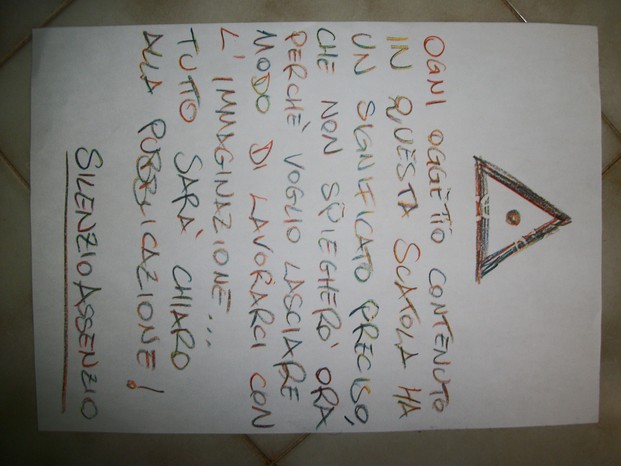 OGNI OGGETTO CONTENUTO
IN QUESTA SCATOLA HA
UN SIGNIFICATO PRECISO,
CHE NON SPIEGHERÒ ORA
PERCHÈ VOGLIO LASCIARE
MODO DI LAVORARCI CON
L'IMMAGINAZIONE...
TUTTO SARÀ CHIARO
ALLA PUBBLICAZIONE!
SILENZIOASSENZIO